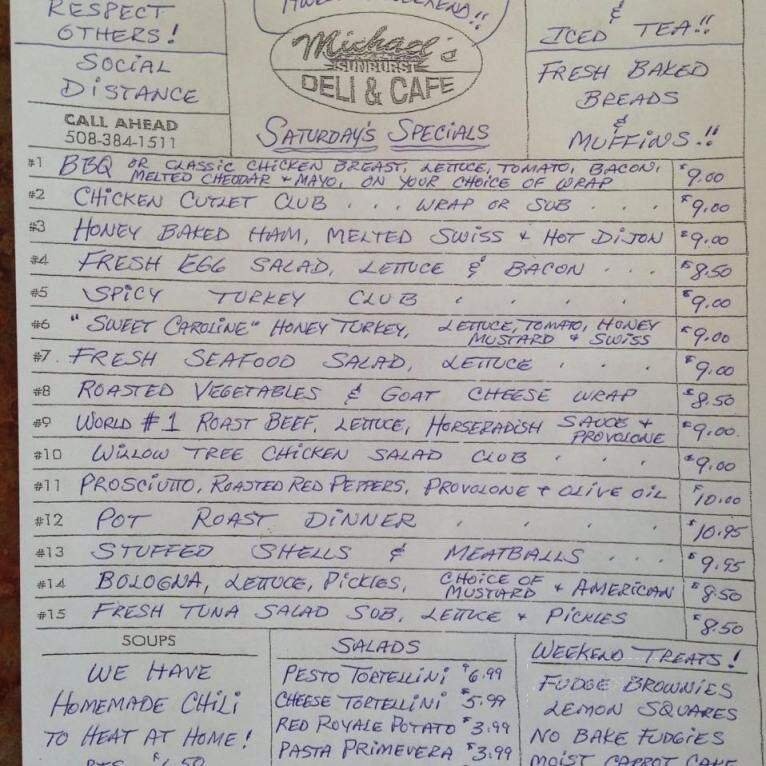 RESPECT
OTHERS!
SOCIAL
DISTANCE
CALL AHEAD
508-384-1511
WEEKEND!!
Michael's
SUNBURST
DELI & CAFE
SATURDAY'S SPECIALS
&
ICED TEA!!
FRESH BAKED
BREADS
&
MUFFINS!!
#1 BBQ OR CLASSIC CHICKEN BREAST, LETTUCE, TOMATO, BACON,
MELTED CHEDDAR + MAYO, ON YOUR CHOICE OF WRAP $9.00
#2 CHICKEN CUTLET CLUB . . . WRAP OR SUB . . . $9.00
#3 HONEY BAKED HAM, MELTED SWISS + HOT DIJON $9.00
#4 FRESH EGG SALAD, LETTUCE & BACON . . . $8.50
#5 SPICY TURKEY CLUB . . . . $9.00
#6 "SWEET CAROLINE" HONEY TURKEY, LETTUCE, TOMATO, HONEY
MUSTARD & SWISS $9.00
#7 FRESH SEAFOOD SALAD, LETTUCE . . . $9.00
#8 ROASTED VEGETABLES & GOAT CHEESE WRAP $8.50
#9 WORLD #1 ROAST BEEF, LETTUCE, HORSERADISH SAUCE +
PROVOLONE $9.00
#10 WILLOW TREE CHICKEN SALAD CLUB . . . $9.00
#11 PROSCIUTTO, ROASTED RED PEPPERS, PROVOLONE + OLIVE OIL $10.00
#12 POT ROAST DINNER . . . . $10.95
#13 STUFFED SHELLS & MEATBALLS . . . $9.95
#14 BOLOGNA, LETTUCE, PICKLES, CHOICE OF
MUSTARD + AMERICAN $8.50
#15 FRESH TUNA SALAD SUB, LETTUCE + PICKLES $8.50
SOUPS
WE HAVE
HOMEMADE CHILI
TO HEAT AT HOME!
SALADS
PESTO TORTELLINI $6.99
CHEESE TORTELLINI $5.99
RED ROYALE POTATO $3.99
PASTA PRIMEVERA $3.99
WEEKEND TREATS!
FUDGE BROWNIES
LEMON SQUARES
NO BAKE FUDGIES
MOIST CARROT CAKE